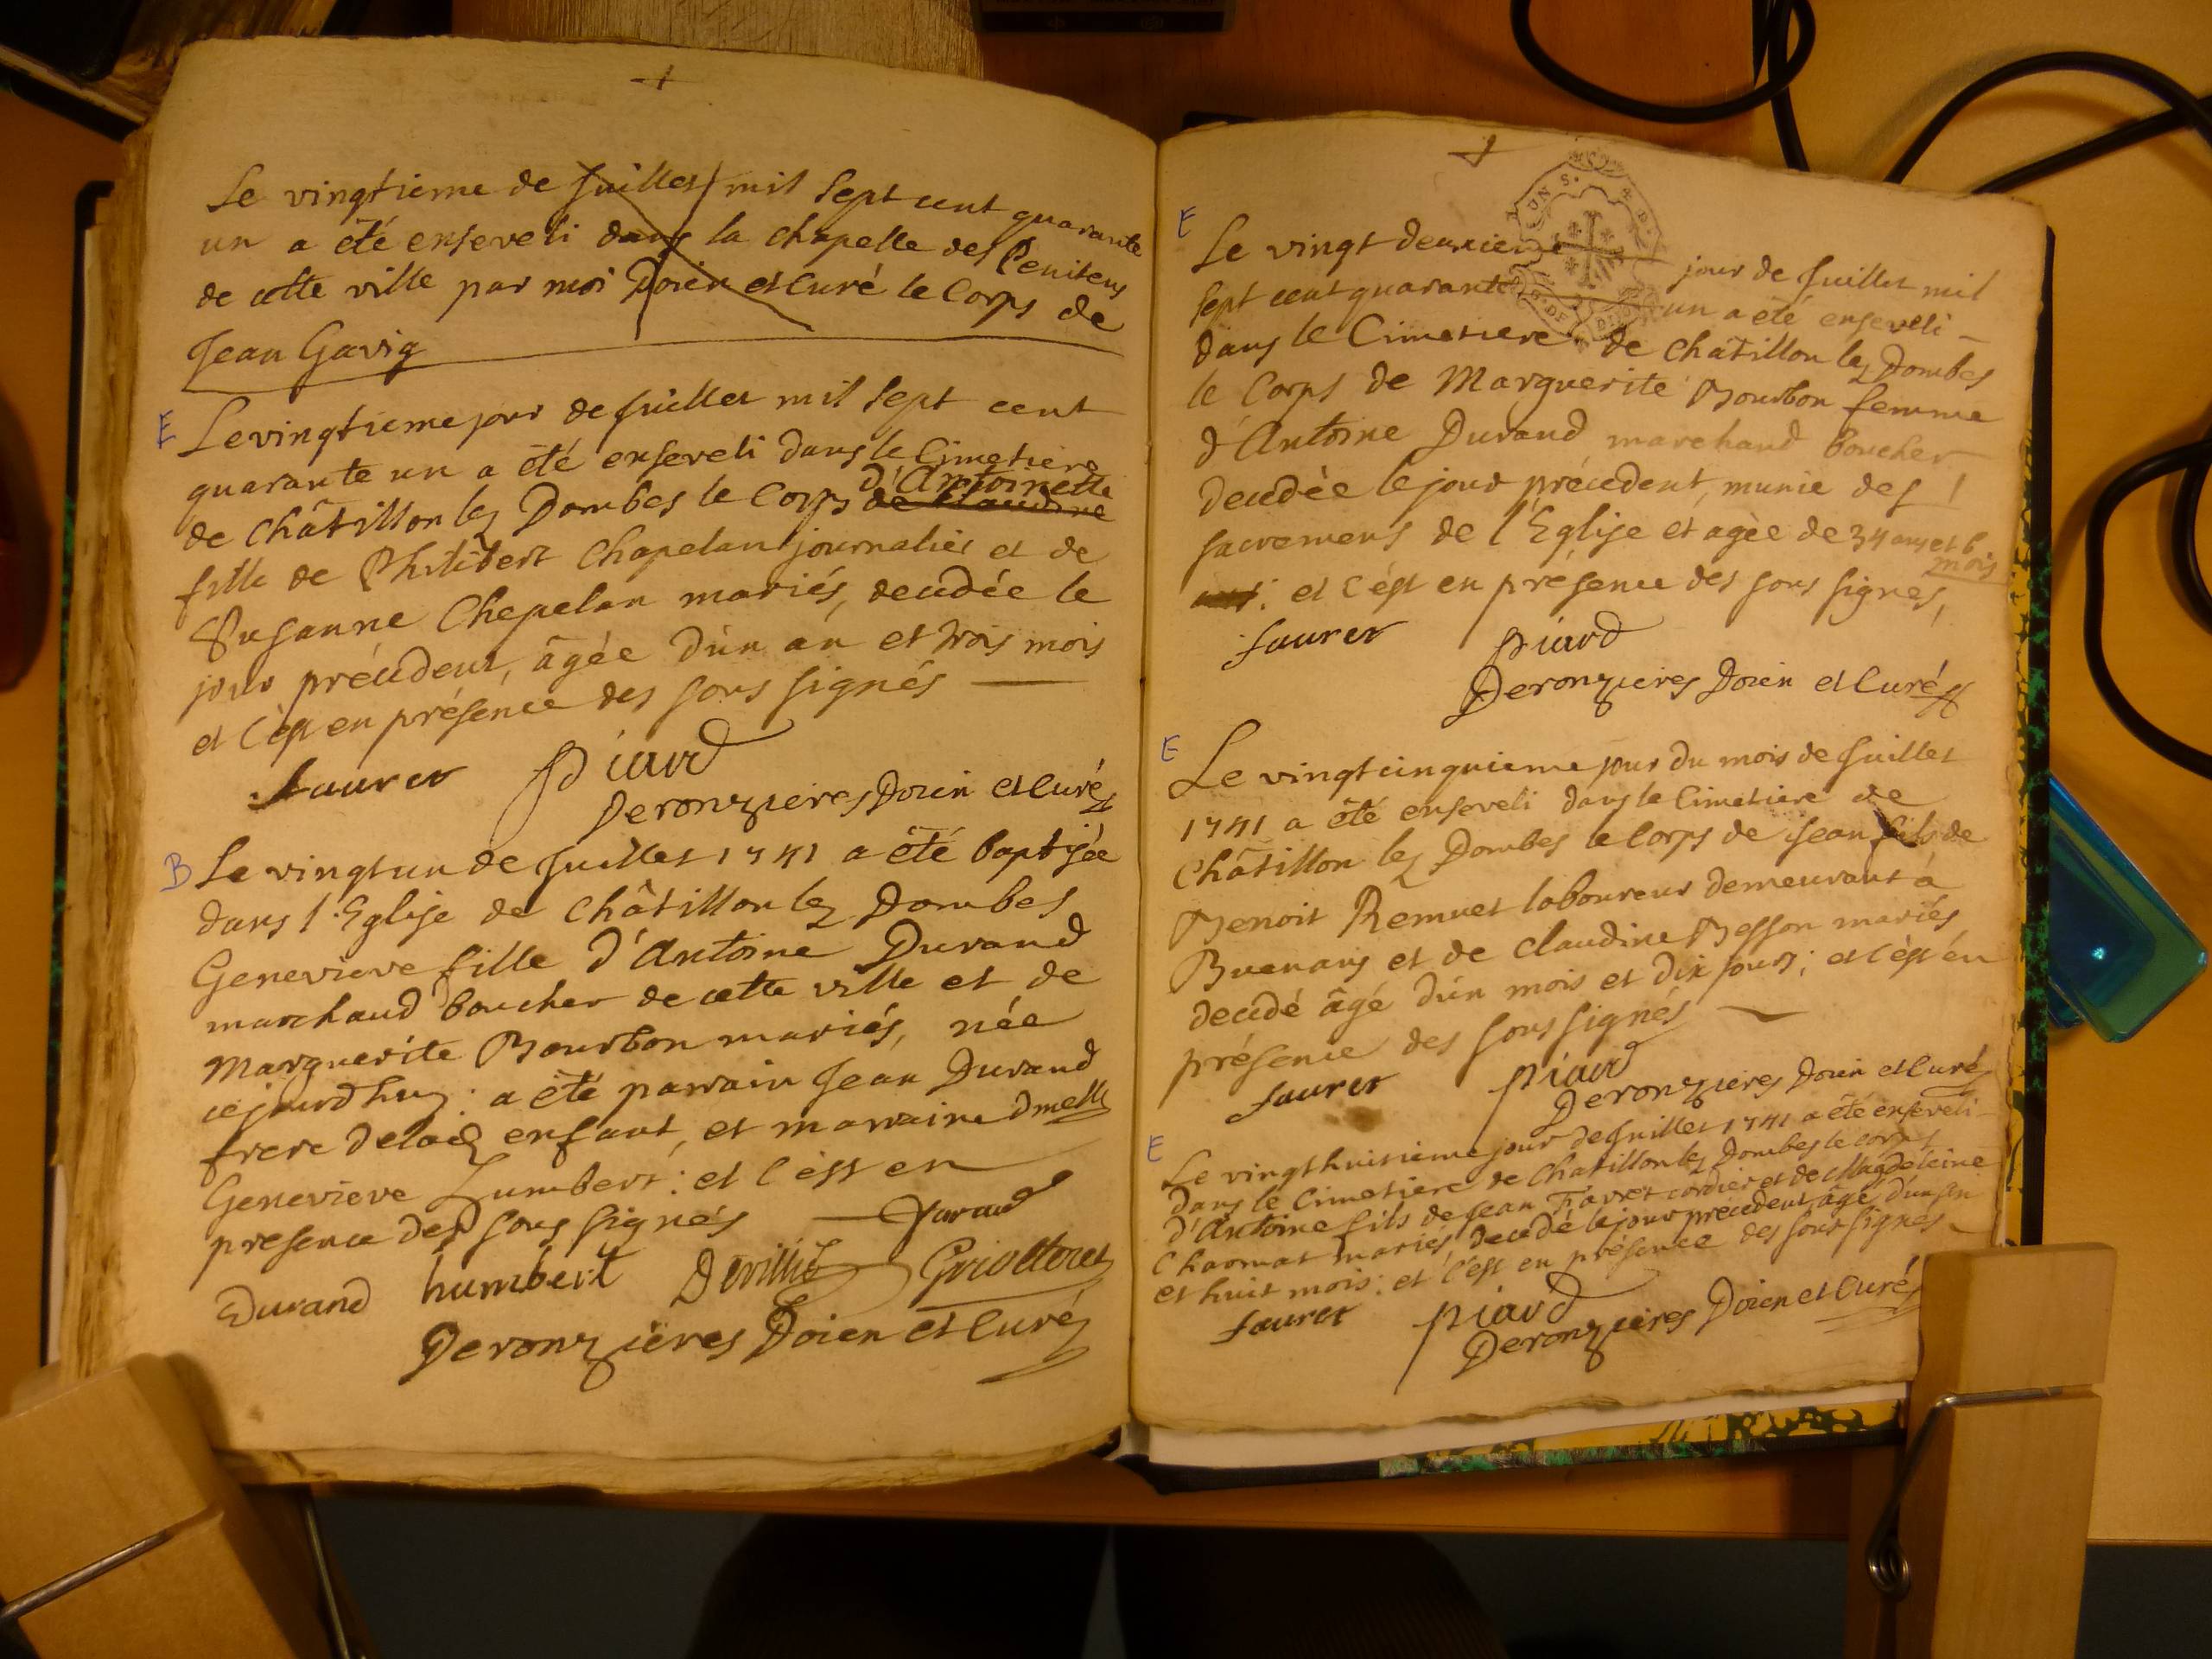 Le vingtieme de Juillet mil sept cent quarante
un a été enseveli dans la chapelle des Penitens
de cette ville par moi Doien et Curé le Corps de
Jean Gavig
E Le vingtieme jour de Juillet mil sept cent
quarante un a été enseveli dans le Cimetiere
d'Antoinette
de Châtillon lez Dombes le Corps de Claudine
fille de Philibert Chapelan journalier et de
Susanne Chepelan mariés, decédée le
jour précedent, âgée d'un an et trois mois
et c'est en présence des sous signés
faurer piard
Deronzieres Doien et Curé
B Le vingt un de Juillet 1741 a été baptisée
dans l'Eglise de Châtillon lez Dombes
Genevieve fille d'Antoine Durand
marchand boucher de cette ville et de
Marguerite Bourbon mariés, née
cejourd'huy : a été parrain Jean Durand
frere de lad enfant, et marraine dmelle
Genevieve Lumbert : et c'est en
presence des sous signés Durand
Durand humbert Devillie Griotteret
Deronzieres Doien et Curé
E Le vingt deuxieme jour de Juillet mil
sept cent quarante un a été enseveli
dans le Cimetiere de Châtillon lez Dombes
le Corps de Marguerite Bourbon femme
d'Antoine Durand marchand boucher
decedée le jour précedent, munie des
sacremens de l'Eglise et agée de 34 ans et 6
mois
ans : et c'est en présence des sous signés,
faurer piard
Deronzieres Doien et Curé
E Le vingt cinquieme jour du mois de Juillet
1741 a été enseveli dans le Cimetiere de
Châtillon lez Dombes le Corps de Jean fils de
Benoit Remuet laboureur demeurant à
Buenans et de Claudine Besson mariés
decédé âgé d'un mois et dix jours ; et c'est en
présence des sous signés
faurer piard
Deronzieres Doien et Curé
E Le vingt huitieme jour de Juillet 1741 a été enseveli
dans le Cimetiere de Chatillon lez Dombes le corps
d'Antoine fils de Jean Favret cordier et de Magdeleine
Charmat mariés, decedé le jour précedent, âgé d'un an
et huit mois : et c'est en présence des sous signés
faurer piard
Deronzieres Doien et Curé